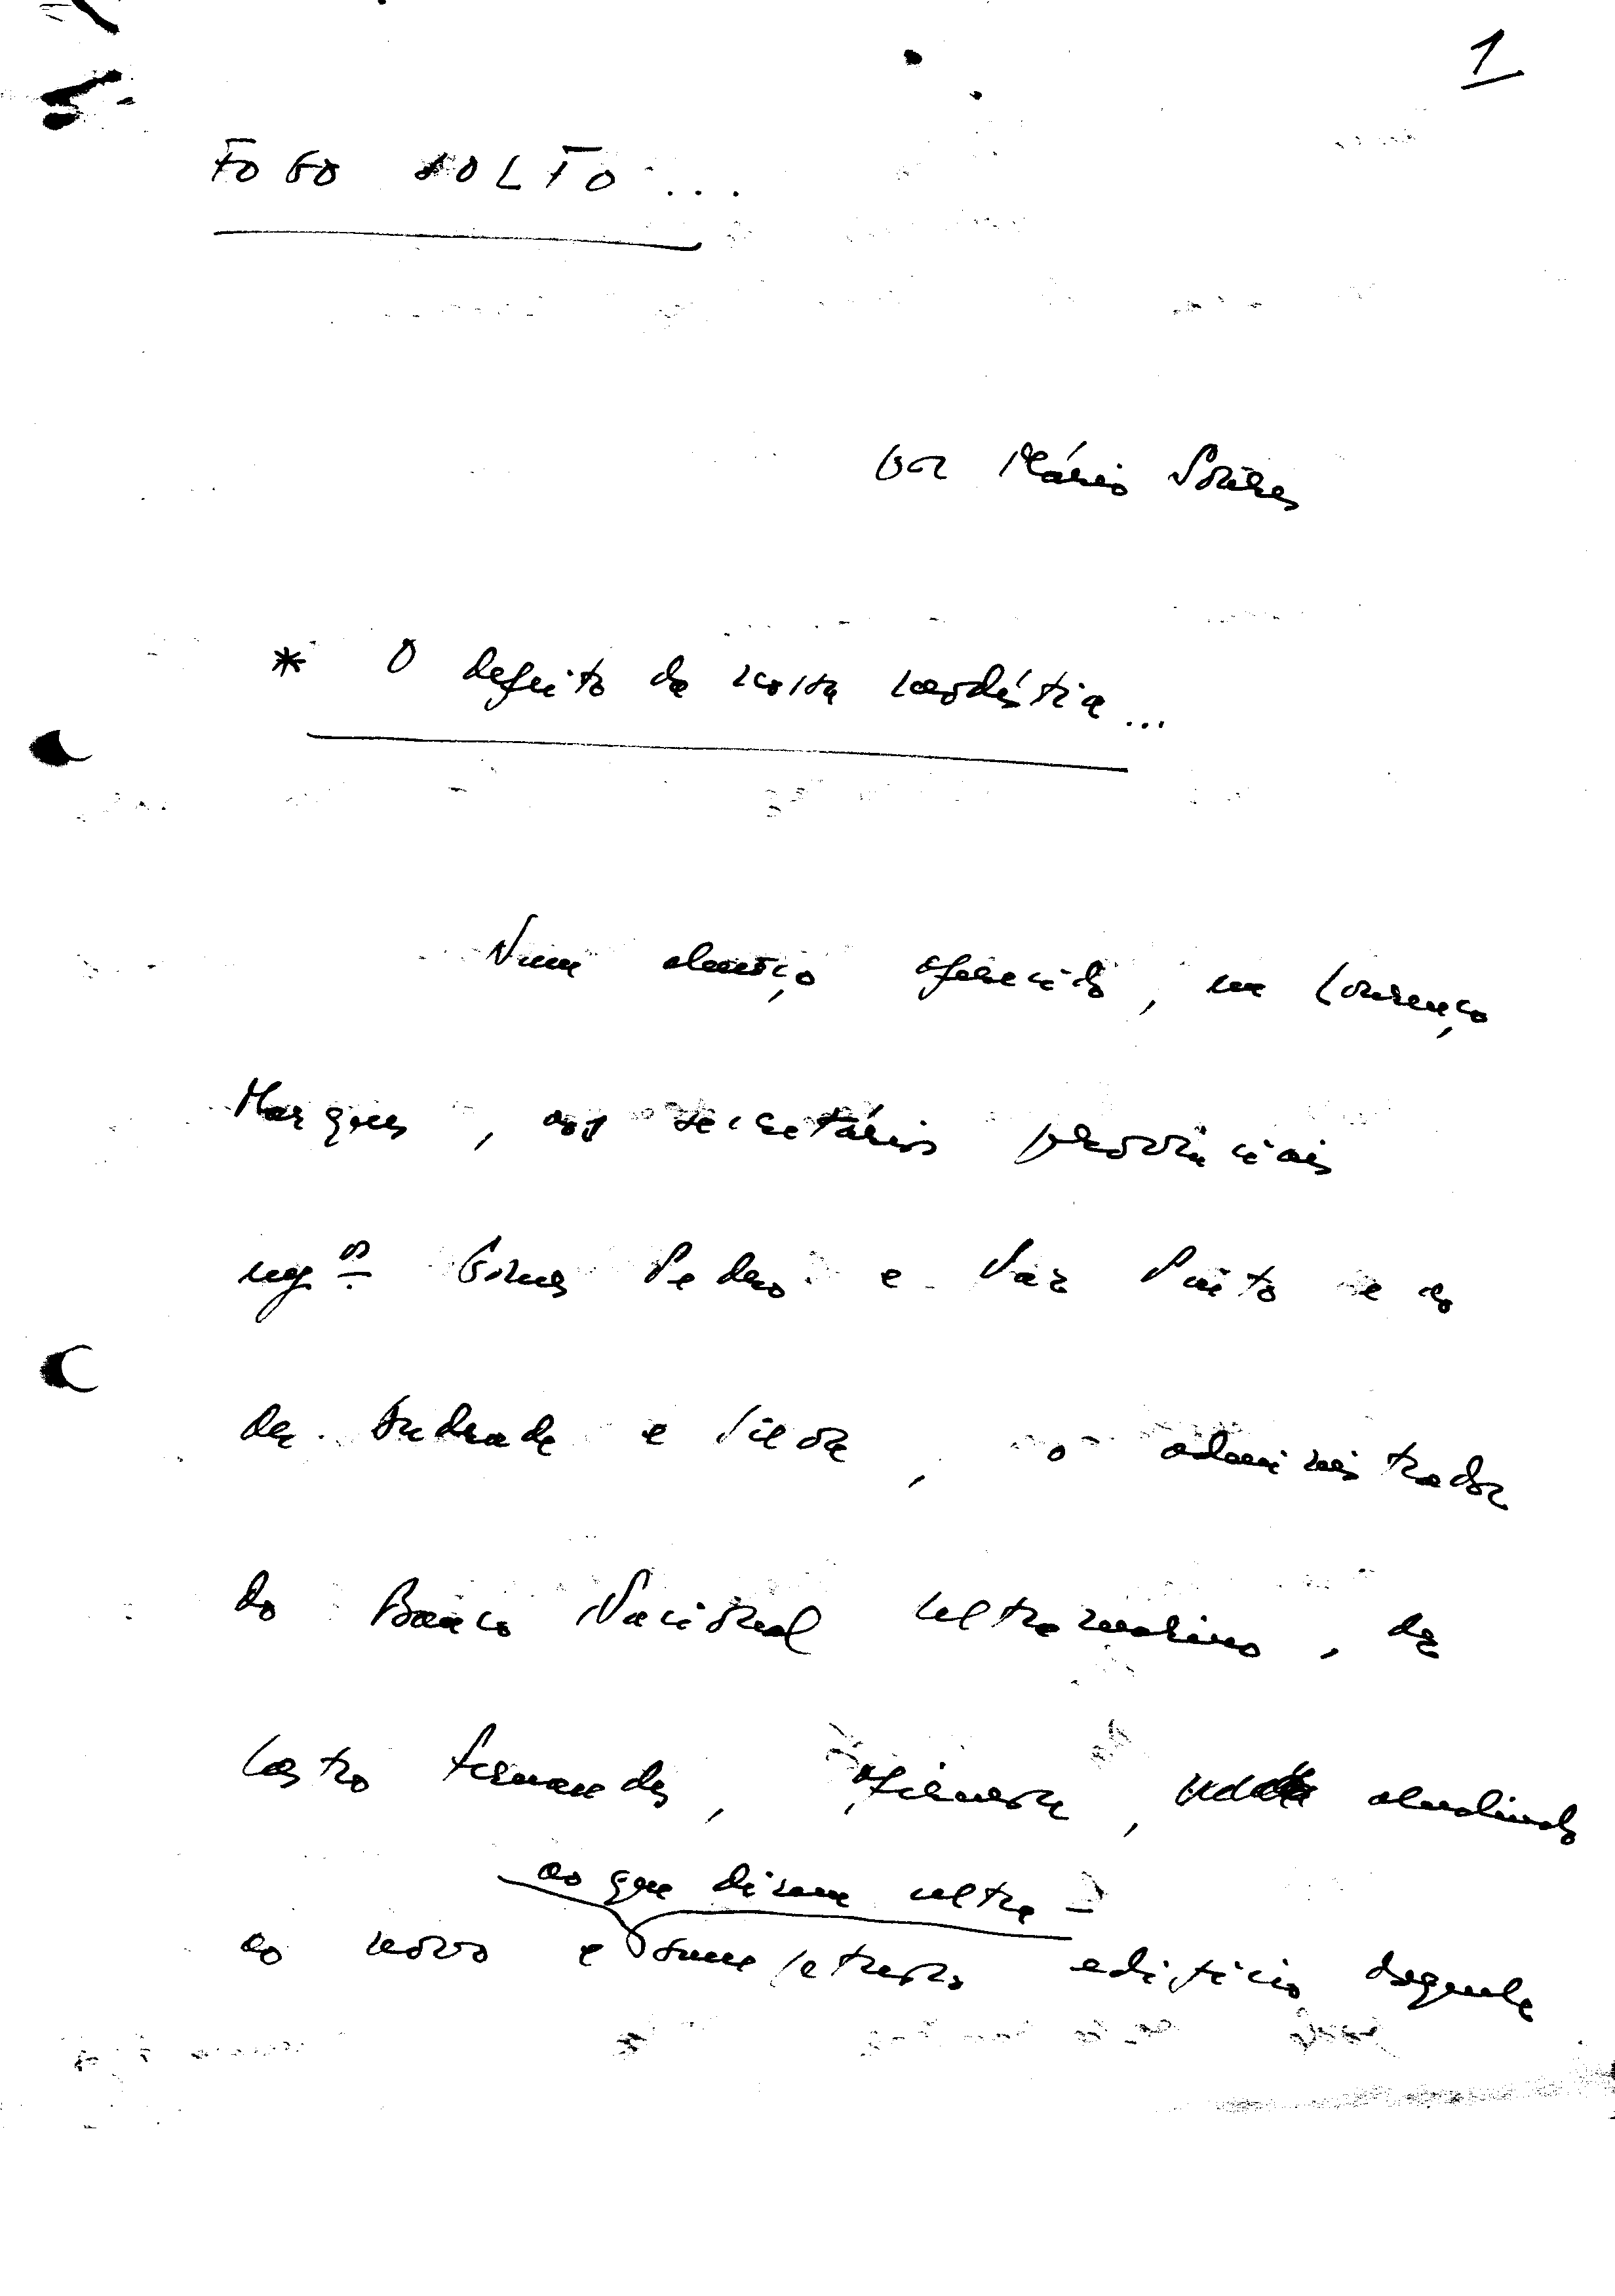 1
FOGO SOLTO...
por Mário Soares
* O defeito da nossa modéstia...
Num almoço oferecido, em Lourenço
Marques, aos secretários provinciais
eng.os Gomes Pedro e Vaz Pinto e ao
dr. Andrade e Silva, o administrador
do Banco Nacional Ultramarino, dr
Castro Fernandes, afirmou, aludindo
ao que dizem ultra-
ao novo e sumptuoso edifício daquele